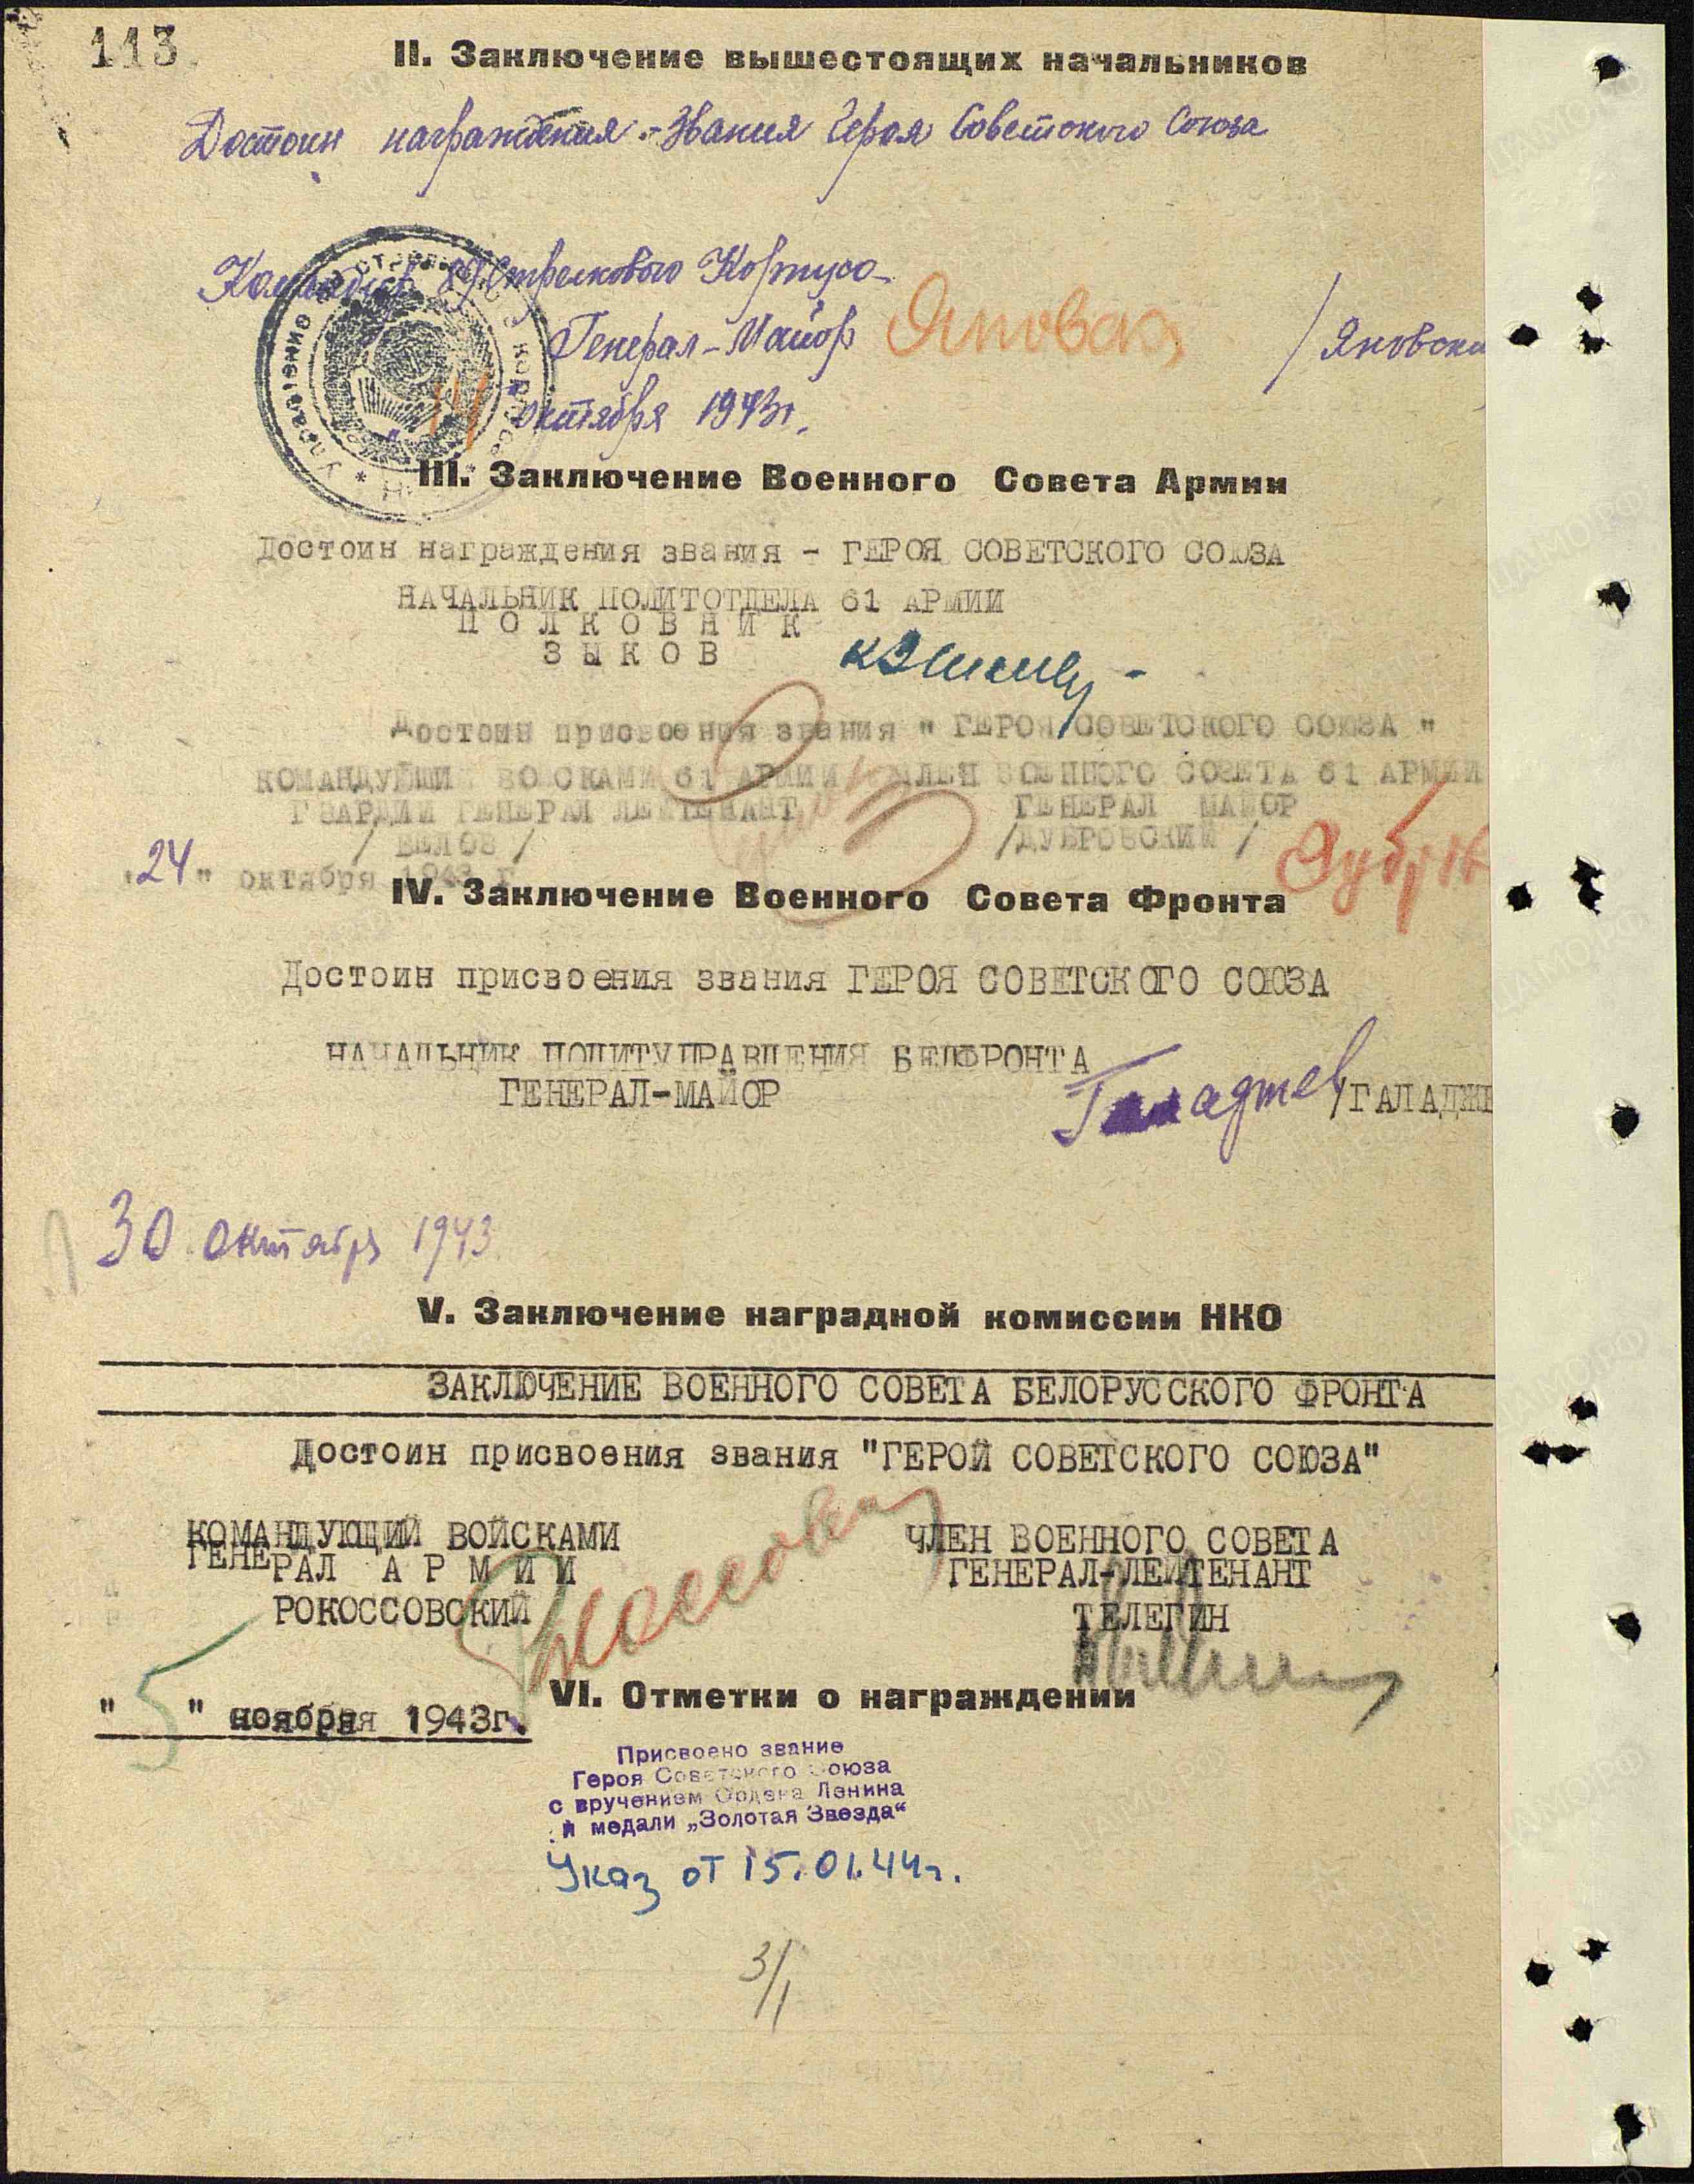 113.
II. Заключение вышестоящих начальников
Достоин награждения - Звания Героя Советского Союза
Командир 89 Стрелкового Корпуса
Генерал-Майор Яновск /Яновски
"14" октября 1943г.
III. Заключение Военного Совета Армии
Достоин награждения звания - ГЕРОЯ СОВЕТСКОГО СОЮЗА
НАЧАЛЬНИК ПОЛИТОТДЕЛА 61 АРМИИ
ПОЛКОВНИК
ЗЫКОВ
Достоин присвоения звания " ГЕРОЯ СОВЕТСКОГО СОЮЗА "
КОМАНДУЮЩИЙ ВОЙСКАМИ 61 АРМИИ ЧЛЕН ВОЕННОГО СОВЕТА 61 АРМИИ
ГВАРДИИ ГЕНЕРАЛ ЛЕЙТЕНАНТ ГЕНЕРАЛ МАЙОР
/ БЕЛОВ / /ДУБРОВСКИЙ /
"24" октября 1943 г
IV. Заключение Военного Совета Фронта
Достоин присвоения звания ГЕРОЯ СОВЕТСКОГО СОЮЗА
НАЧАЛЬНИК ПОЛИТУПРАВЛЕНИЯ БЕЛФРОНТА
ГЕНЕРАЛ-МАЙОР Галаджев /ГАЛАДЖЕ
30 октября 1943
V. Заключение наградной комиссии НКО
ЗАКЛЮЧЕНИЕ ВОЕННОГО СОВЕТА БЕЛОРУССКОГО ФРОНТА
Достоин присвоения звания "ГЕРОЙ СОВЕТСКОГО СОЮЗА"
КОМАНДУЮЩИЙ ВОЙСКАМИ ЧЛЕН ВОЕННОГО СОВЕТА
ГЕНЕРАЛ АРМИИ ГЕНЕРАЛ-ЛЕЙТЕНАНТ
РОКОССОВСКИЙ ТЕЛЕГИН
"5" ноября 1943г.
VI. Отметки о награждении
Присвоено звание
Героя Советского Союза
с вручением Ордена Ленина
и медали „Золотая Звезда“
Указ от 15.01.44г.
3/1